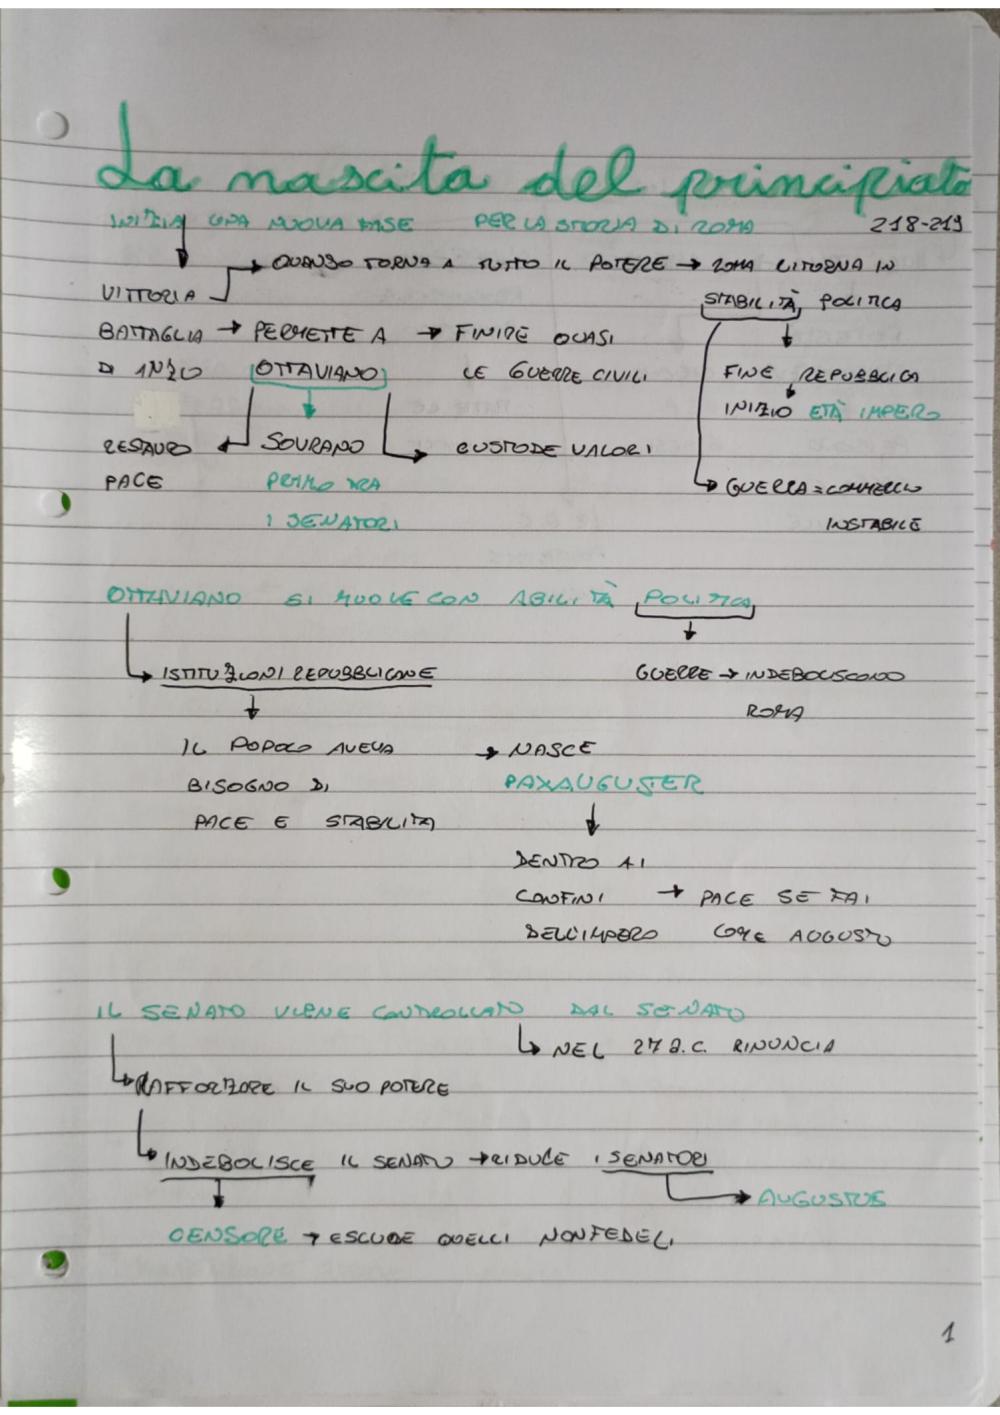 La nascita del principiato
INIZIA UNA NUOVA FASE PER LA STORIA DI ROMA 218-219
QUANDO TORNA A TUTTO IL POTERE → ROMA RITORNA IN
VITTORIA STABILITÀ POLITICA
BATTAGLIA → PERMETTE A → FINIRE QUASI
D'ANZIO OTTAVIANO LE GUERRE CIVILI FINE REPUBBLICA
INIZIO ETÀ IMPERO
RESTAURO SOVRANO CUSTODE VALORI
PACE PRIMO TRA GUERRA = COMMERCIO
I SENATORI INSTABILE
OTTAVIANO SI MUOVE CON ABILITÀ POLITICA
ISTITUZIONI REPUBBLICANE GUERRE → INDEBOLISCONO
ROMA
IL POPOLO AVEVA → NASCE
BISOGNO DI PAXAUGUSTER
PACE E STABILITA
DENTRO AI
CONFINI → PACE SE FAI
DELL'IMPERO COME AUGUSTO
IL SENATO VIENE CONTROLLATO DAL SENATO
NEL 27 a.C. RINUNCIA
RAFFORZARE IL SUO POTERE
INDEBOLISCE IL SENATO → RIDUCE I SENATORI
AUGUSTUS
CENSORE → ESCLUDE QUELLI NON FEDELI
1